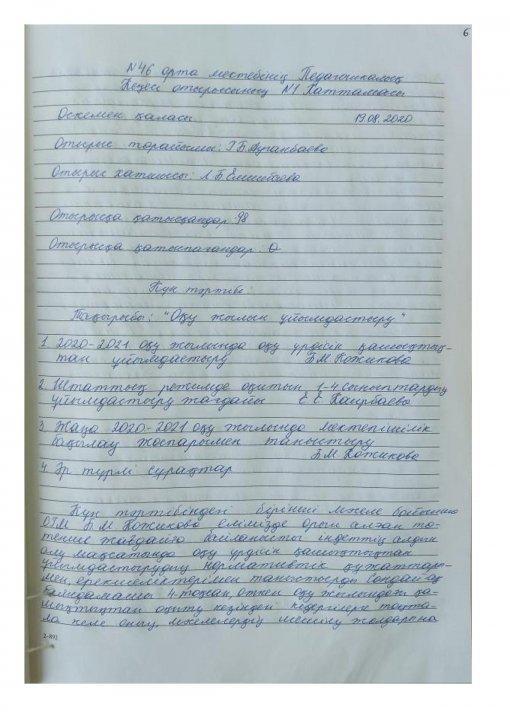 6
N46 орта мектебінің Педагогикалық
Кеңесі отырысының N1 Хаттамасы
Өскемен қаласы 19.08.2020
Отырыс төрайымы: Г.Б.Ауганбаева
Отырыс хатшысы: Л.Б Емишбаева
Отырысқа қатысқандар: 98
Отырысқа қатыспағандар: 0
Күн тәртібі:
Тақырыбы: "Оқу жылын ұйымдастыру"
1. 2020-2021 оқу жылында оқу үрдісін қашықтық-
тан ұйымдастыру Б.М Кожикова
2. Штаттық режимде оқитын 1-4 сыныптардың
ұйымдастыру жағдайы Е С Каирбаева
3. Жаңа 2020-2021 оқу жылында мектепішілік
бақылау жоспарымен таныстыру
Б.М Кожикова
4. Әр түрлі сұрақтар
Күн тәртебіндегі бірінші мәселе бойынша
Б.М Кожикова елімізде орын алған тө-
тенше жағдайға байланысты індеттің алдын
алу мақсатында оқу үрдісін қашықтықтан
ұйымдастырудың нормативтік құжаттары-
мен, ерекшеліктерімен таныстырды. Сондай ақ
4-тоқсан, өткен оқу жылындағы қа-
шықтықтан оқыту кезіндегі кедергілерге тоқта-
ла келе оның, мәселелердің шешілу жолдарына
2-892